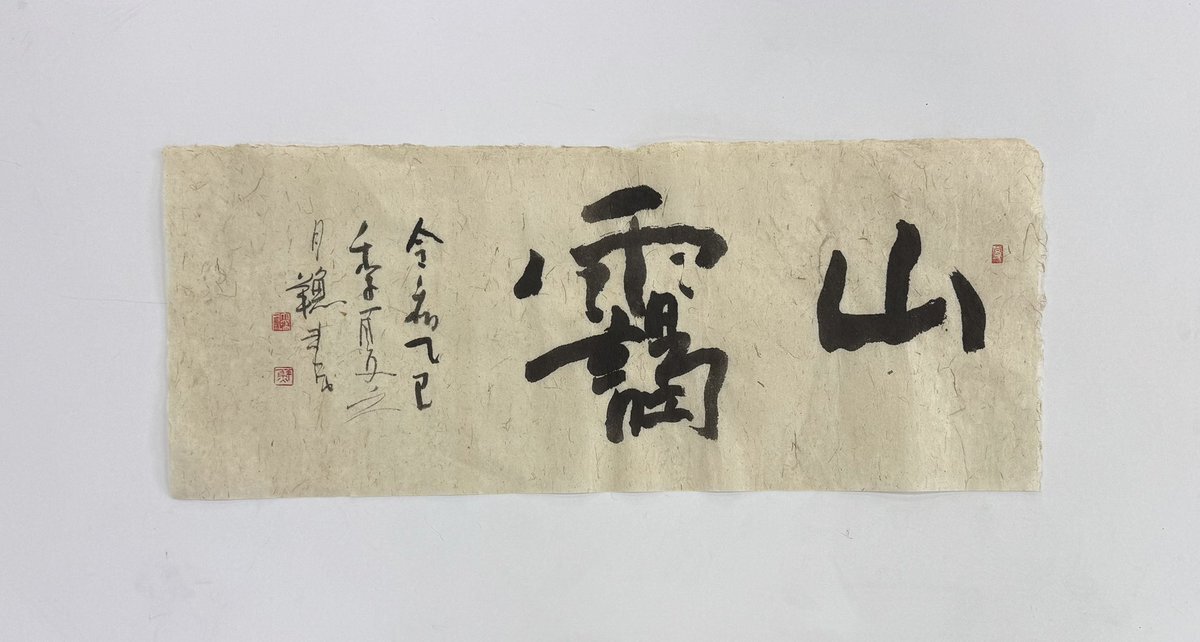 山靄
令和乙巳
季夏之
月